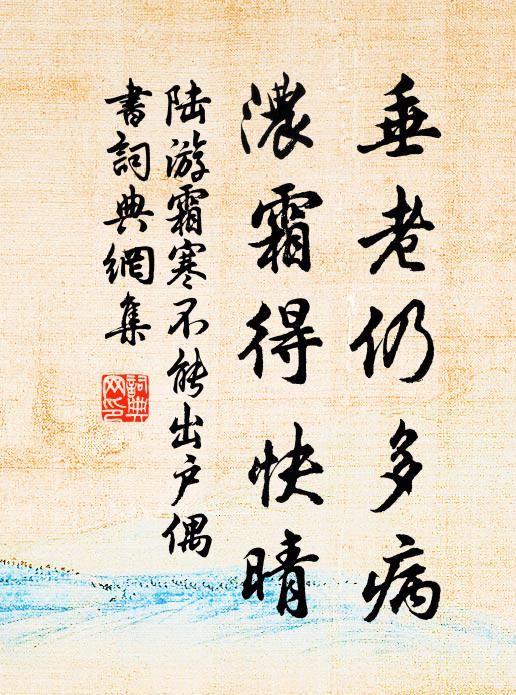 垂老仍多病
濃霜得快晴
陆游霜寒不能出户偶
書詞典網集
詞典
网印